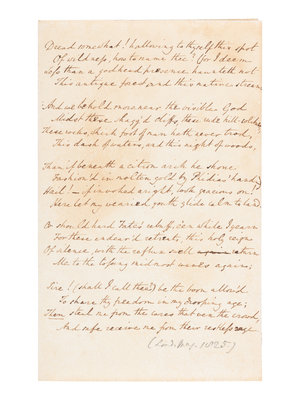 Dread somewhat! hallowing to thyself this spot
Of wildness, how to name thee! for I deem
Less than a godhead presence haunteth not
This antique food and this native stream
And we behold more near the visible God
Midst these shagg'd cliffs, these rude hill
These rocks, which foot of man hath never trod,
This dash of waters, and this night of woods,
Than if beneath a citron arch he shone
Fashion'd in molten gold by Phidias' hand;
Hail! — if invoked aright, look gracious on!
Here let my wearied youth glide calm to land
Or should hard Fate's rebuff, e'en while I yearn
For these endear'd retreats, this holy reign
Of silence, with the reflux swell return
Me to the tossing midmost waves again;
Sire! (shall I call thee) be the boon allow'd
To share thy freedom in my drooping age;
Then steal me from the cares that vex the crowd,
And safe receive me from their restless rage
1825)